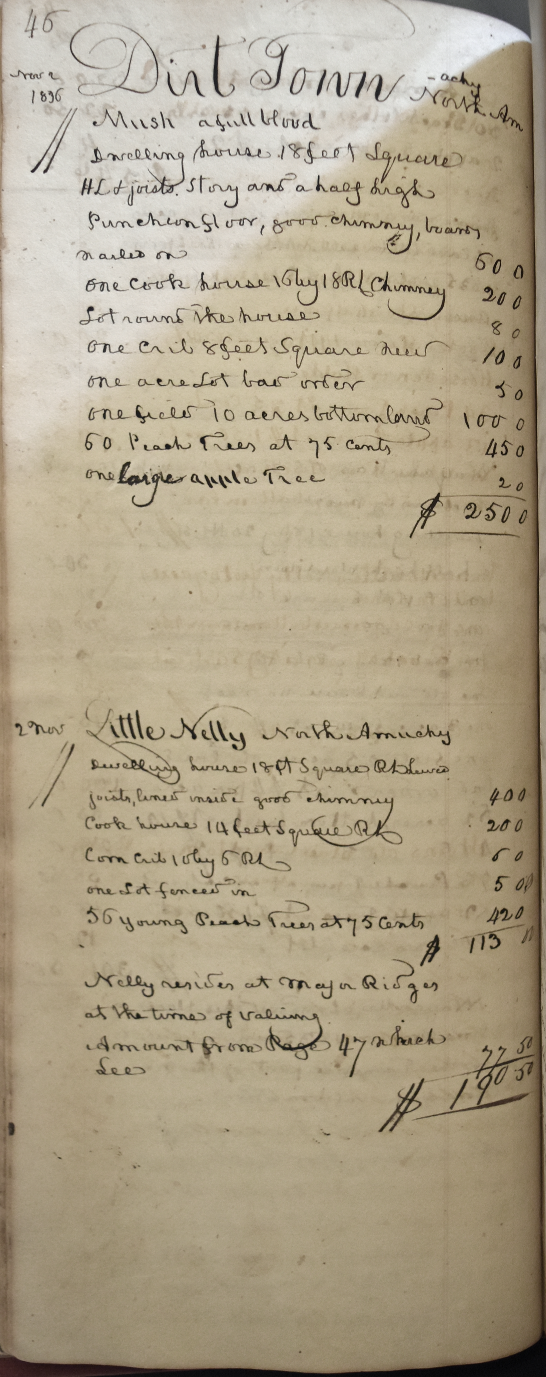 46
Nov 2
1836
Dirt Town
North Am
-achy
Mush a full blood
Dwelling house 18 feet Square
HL & joists. Story and a half high
Puncheon floor, good chimney, boards
nailed on 60 0
one Cook house 16 by 18 RL Chimney 20 0
Lot round the house 8 0
one Crib 8 feet Square new 10 0
one acre Lot bad order 5 0
one field 10 acres bottom land 100 0
60 Peach Trees at 75 cents 45 0
one large apple Tree 2 0
$ 250 0
2 Nov
Little Nelly North Amuchy
Dwelling house 18 ft Square RL hewed
joists, lined inside good chimney 40 0
Cook house 14 feet Square RL 20 0
Corn Crib 10 by 6 RL 6 0
one Lot fenced in 5 00
56 young Peach Trees at 75 Cents 42 0
$ 113 0
Nelly resides at Major Ridges
at the time of valuing
Amount from Page 47 which
See 77 50
$ 190 50